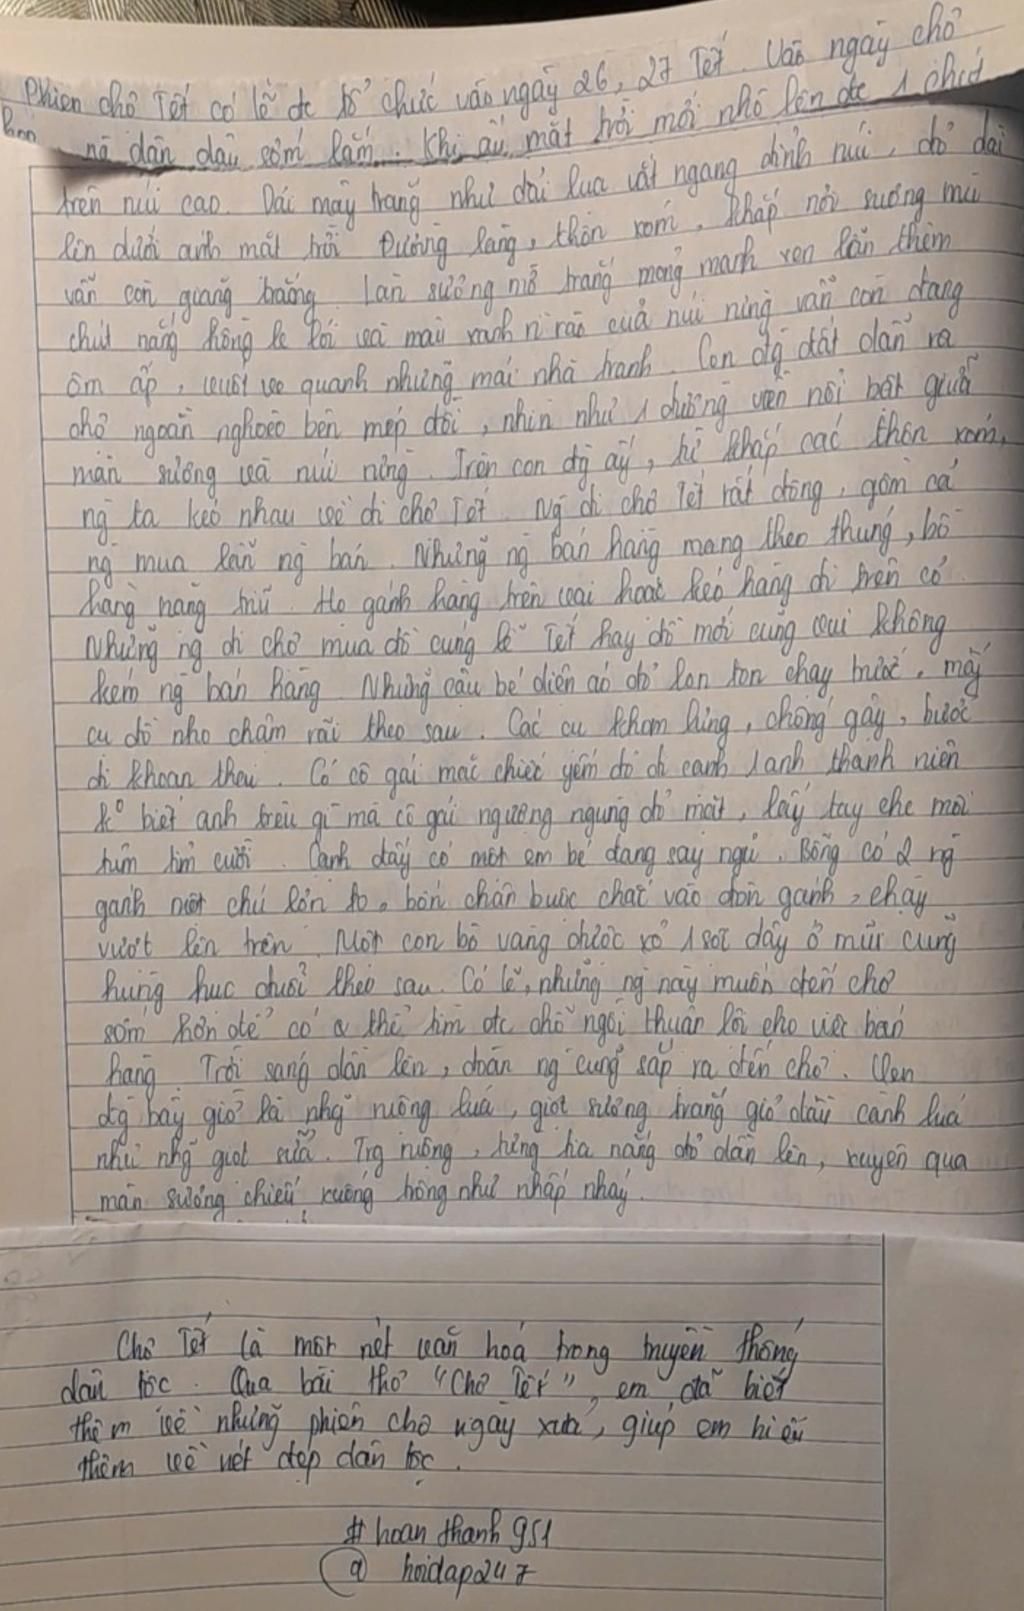 Phiên chợ Tết có lẽ đc tổ chức vào ngày 26, 27 Tết. Vào ngày chợ
nà dân dậy sớm lắm. Khi ấy, mặt trời mới nhô lên đc 1 chút
trên núi cao. Dải mây trắng như dải lụa vắt ngang đỉnh núi, đỏ dại
lên dưới ánh mặt trời. Đường làng, thôn xóm, khắp nơi sương mù
vẫn còn giăng trắng. Làn sương mờ trắng mỏng manh xen lẫn thêm
chút nắng hồng le lói và màu xanh rì rào của núi rừng vẫn còn đang
ôm ấp, vuốt ve quanh những mái nhà tranh. Con đg dắt dẫn ra
chợ ngoằn nghoèo bên mép đồi, nhìn như 1 đường viền nổi bật giữa
màn sương và núi rừng. Trên con đg ấy, từ khắp các thôn xóm,
ng ta kéo nhau về đi chợ Tết. Ng đi chợ Tết rất đông, gồm cả
ng mua lẫn ng bán. Những ng bán hàng mang theo thúng, bồ
hàng nặng trĩu. Họ gánh hàng trên vai hoặc kéo hàng đi trên cỏ.
Những ng đi chợ mua đồ cúng lễ Tết hay đồ mới cũng vui không
kém ng bán hàng. Những cậu bé diện áo đỏ lon ton chạy trước, mấy
cụ đồ nho chậm rãi theo sau. Các cụ khom lưng, chống gậy, bước
đi khoan thai. Có cô gái mặc chiếc yếm đỏ đi cạnh 1 anh thanh niên
k° biết anh trêu gì mà cô gái ngượng ngùng đỏ mặt, lấy tay che môi
tủm tỉm cười. Cạnh đấy có một em bé đang say ngủ. Bỗng có 2 ng
gánh một chú lợn to, bốn chân buộc chặt vào đòn gánh, chạy
vượt lên trên. Một con bò vàng được xỏ 1 sợi dây ở mũi cũng
hùng hục đuổi theo sau. Có lẽ, những ng này muốn đến chợ
sớm hơn để có a thể tìm đc chỗ ngồi thuận lợi cho việc bán
hàng. Trời sáng dần lên, đoàn ng cũng sắp ra đến chợ. Ven
đg bây giờ là nhg ruộng lúa, giọt sương trắng giỏ đầu cành lúa
như nhg giọt sữa. Trg ruộng, từng tia nắng đỏ dần lên, xuyên qua
màn sương chiếu xuống trông như nhấp nháy.
Chợ Tết là một nét văn hoá trong truyền thống
dân tộc. Qua bài thơ "Chợ Tết", em đã biết
thêm về những phiên chợ ngày xưa, giúp em hiểu
thêm về nét đẹp dân tộc.
# hoan thanh gs1
@ hoidap247